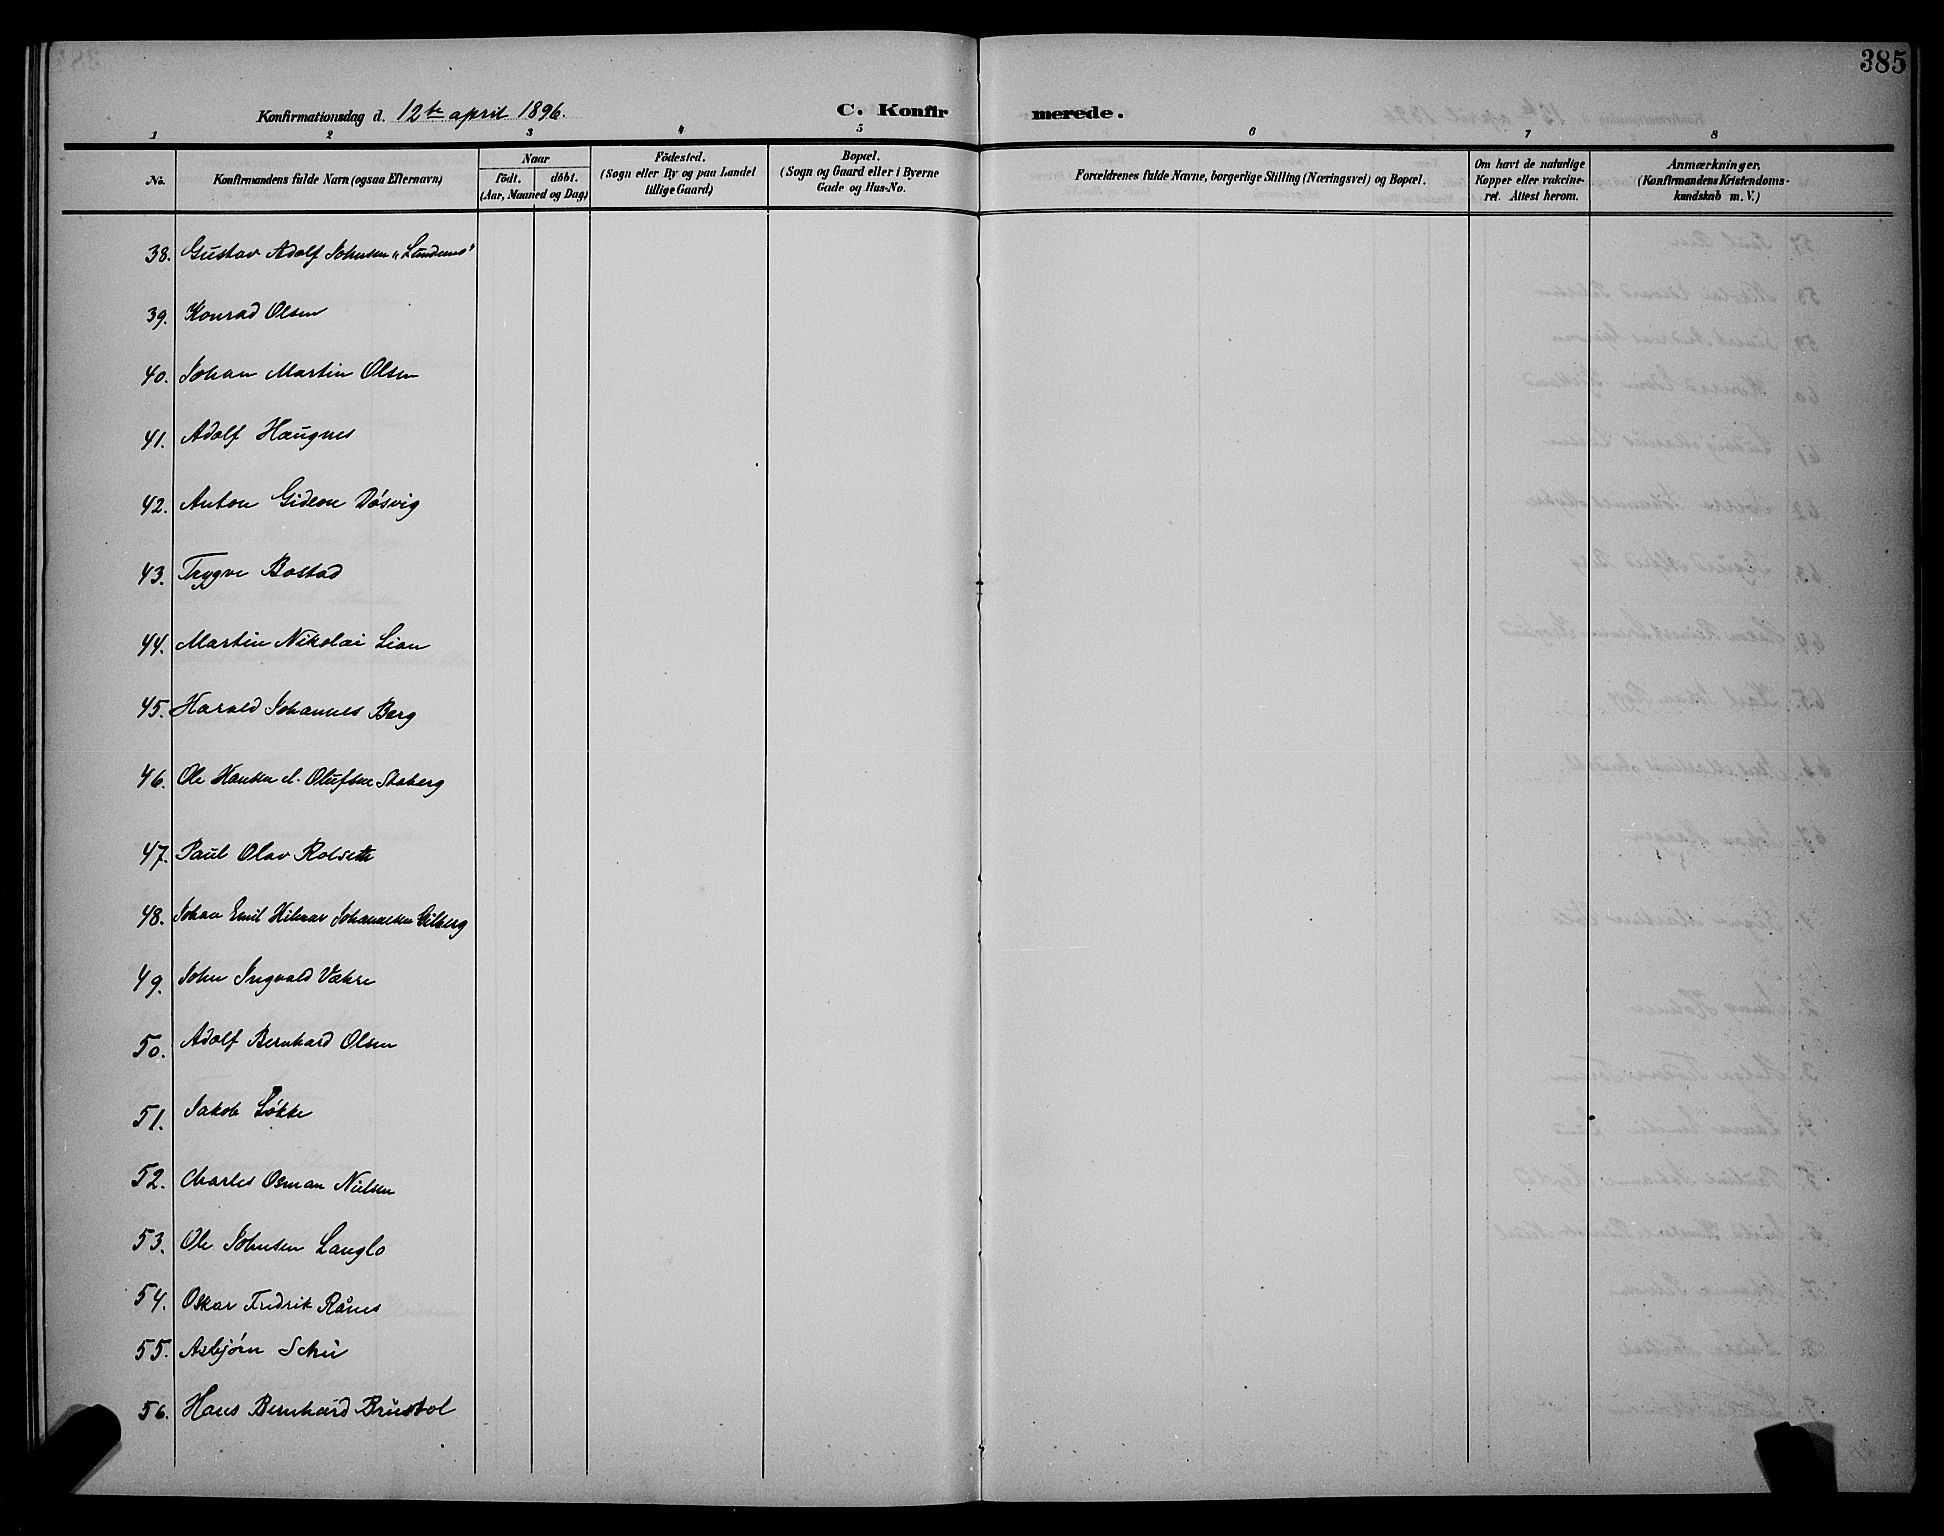 385
Konfirmationsdag d. 12te april 1896.
C. Konfirmerede.
1 2 3 4 5 6 7 8
No.
Konfirmandens fulde Navn (ogsaa Efternavn)
Naar
födt. döbt.
(Aar, Maaned og Dag)
Födested.
(Sogn eller By og paa Landet
tillige Gaard)
Bopæl.
(Sogn og Gaard eller i Byerne
Gade og Hus-No.
Forældrenes fulde Navne, borgerlige Stilling (Næringsvei) og Bopæl.
Om havt de naturlige
Kopper eller vakcine-
ret. Attest herom.
Anmærkninger.
(Konfirmandens Kristendoms-
kundskab m. V.)
38. Gustav Adolf Johnsen „Lundemo"
39. Konrad Olsen
40. Johan Martin Olsen
41. Adolf Haugnes
42. Anton Gideon Døsvig
43. Trygve Bostad
44. Martin Nikolai Lian
45. Harald Johannes Berg
46. Ole Hansen el. Olufsen Stoberg
47. Paul Olav Rolseth
48. Johan Emil Hilmar Johannesen Gilberg
49. John Ingvald Vækre
50. Adolf Bernhard Olsen
51. Jakob Løkke
52. Charles Osman Nielsen
53. Ole Johnsen Langlo
54. Oskar Fredrik Rånes
55. Asbjørn Schu
56. Hans Bernhard Brustol